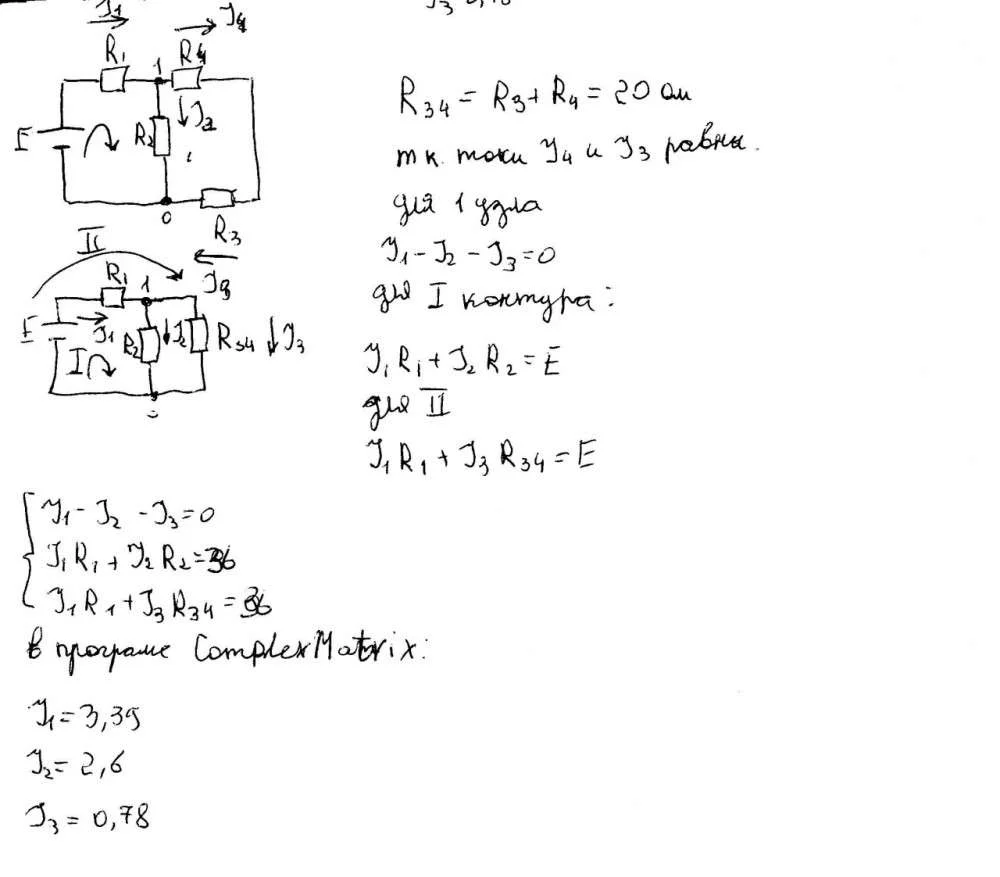 J₁ J₄
R₁ 1 R₄
E R₂ J₂
0
R₃
II J₃
R₁ 1
E J₁ R₂ J₂ R₃₄ J₃
I
R₃₄ = R₃ + R₄ = 20 ом
т к. токи J₄ и J₃ равны.
для 1 узла
J₁ - J₂ - J₃ = 0
для I контура:
J₁R₁ + J₂R₂ = E
для II
J₁R₁ + J₃R₃₄ = E
J₁ - J₂ - J₃ = 0
J₁R₁ + J₂R₂ = 36
J₁R₁ + J₃R₃₄ = 36
в програме ComplexMatrix:
J₁ = 3,39
J₂ = 2,6
J₃ = 0,78